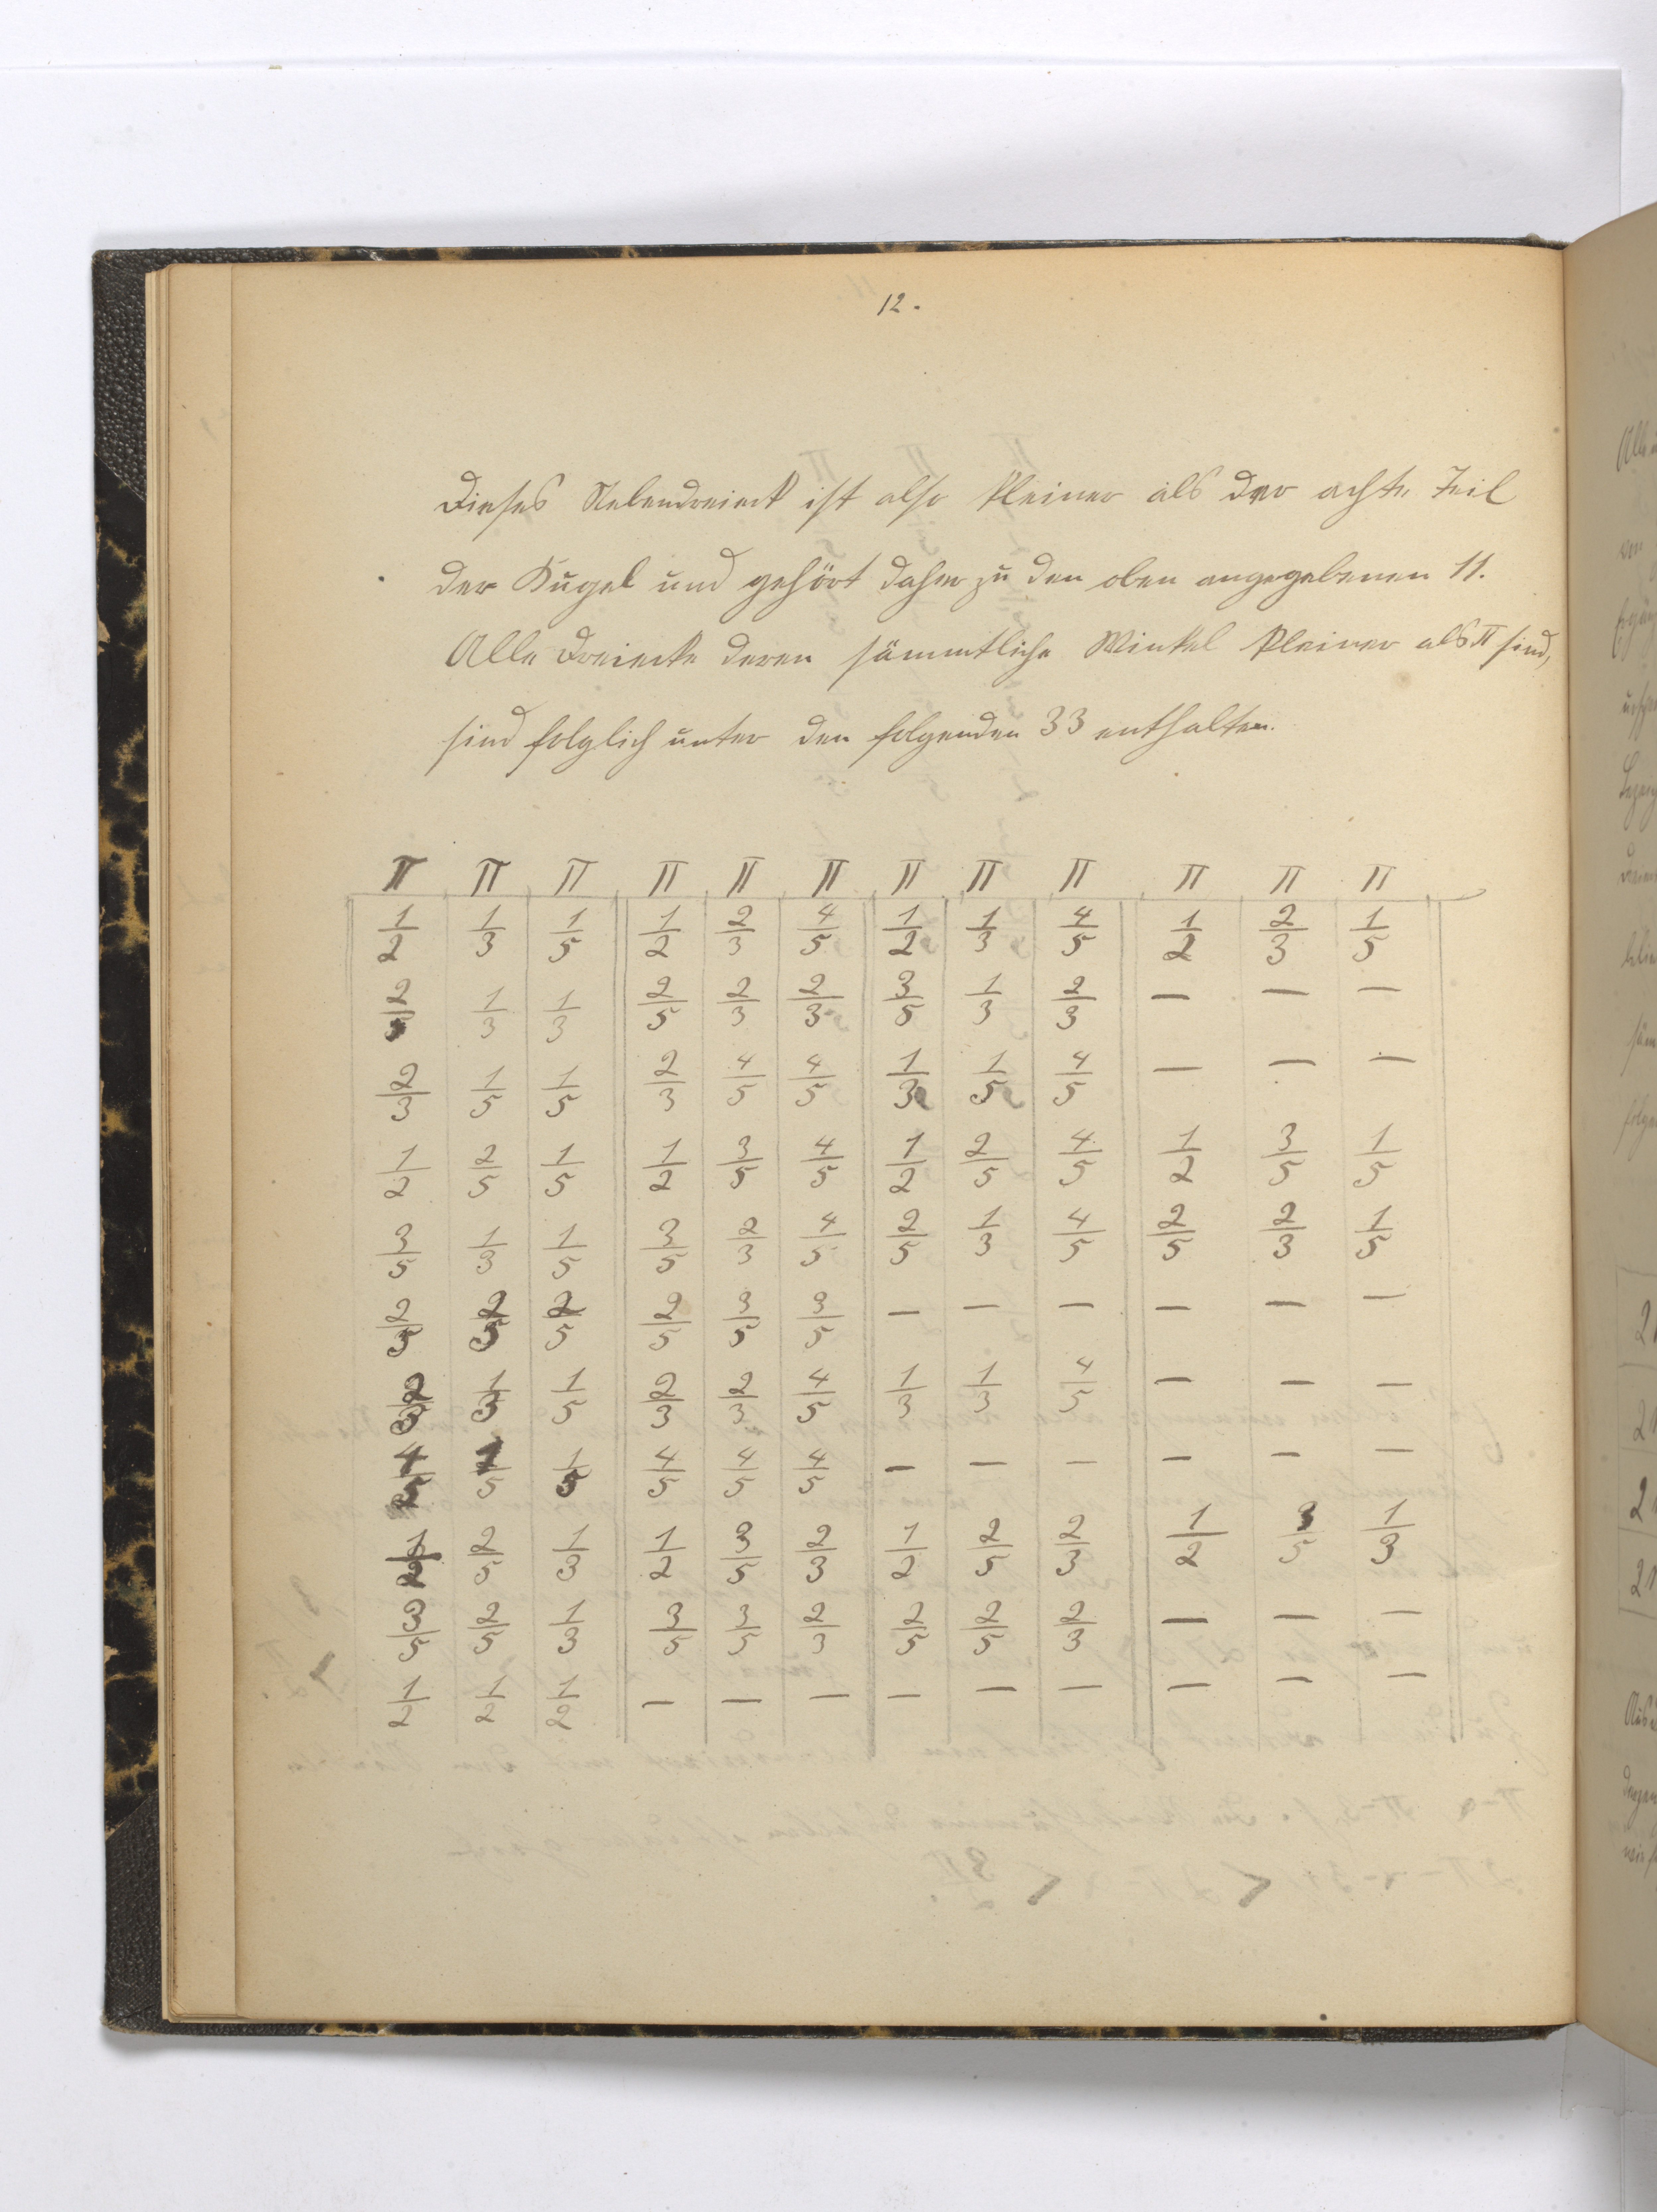 12.
Dieses Nebendreieck ist also kleiner als der achte Teil
der Kugel und gehört daher zu den oben angegebenen 11.
Alle Dreiecke deren sämmtliche Winkel kleiner als π sind,
sind folglich unter den folgenden 33 enthalten.
π π π π π π π π π π π π
1/2 1/3 1/5 1/2 2/3 4/5 1/2 1/3 4/5 1/2 2/3 1/5
2/5 1/3 1/3 2/5 2/3 2/3 3/5 1/3 2/3 — — —
2/3 1/5 1/5 2/3 4/5 4/5 1/3 1/5 4/5 — — —
1/2 2/5 1/5 1/2 3/5 4/5 1/2 2/5 4/5 1/2 3/5 1/5
3/5 1/3 1/5 3/5 2/3 4/5 2/5 1/3 4/5 2/5 2/3 1/5
2/5 2/5 2/5 2/5 3/5 3/5 — — — — — —
2/3 1/3 1/5 2/3 2/3 4/5 1/3 1/3 4/5 — — —
4/5 1/5 1/5 4/5 4/5 4/5 — — — — — —
1/2 2/5 1/3 1/2 3/5 2/3 1/2 2/5 2/3 1/2 3/5 1/3
3/5 2/5 1/3 3/5 3/5 2/3 2/5 2/5 2/3 — — —
1/2 1/2 1/2 — — — — — — — — —